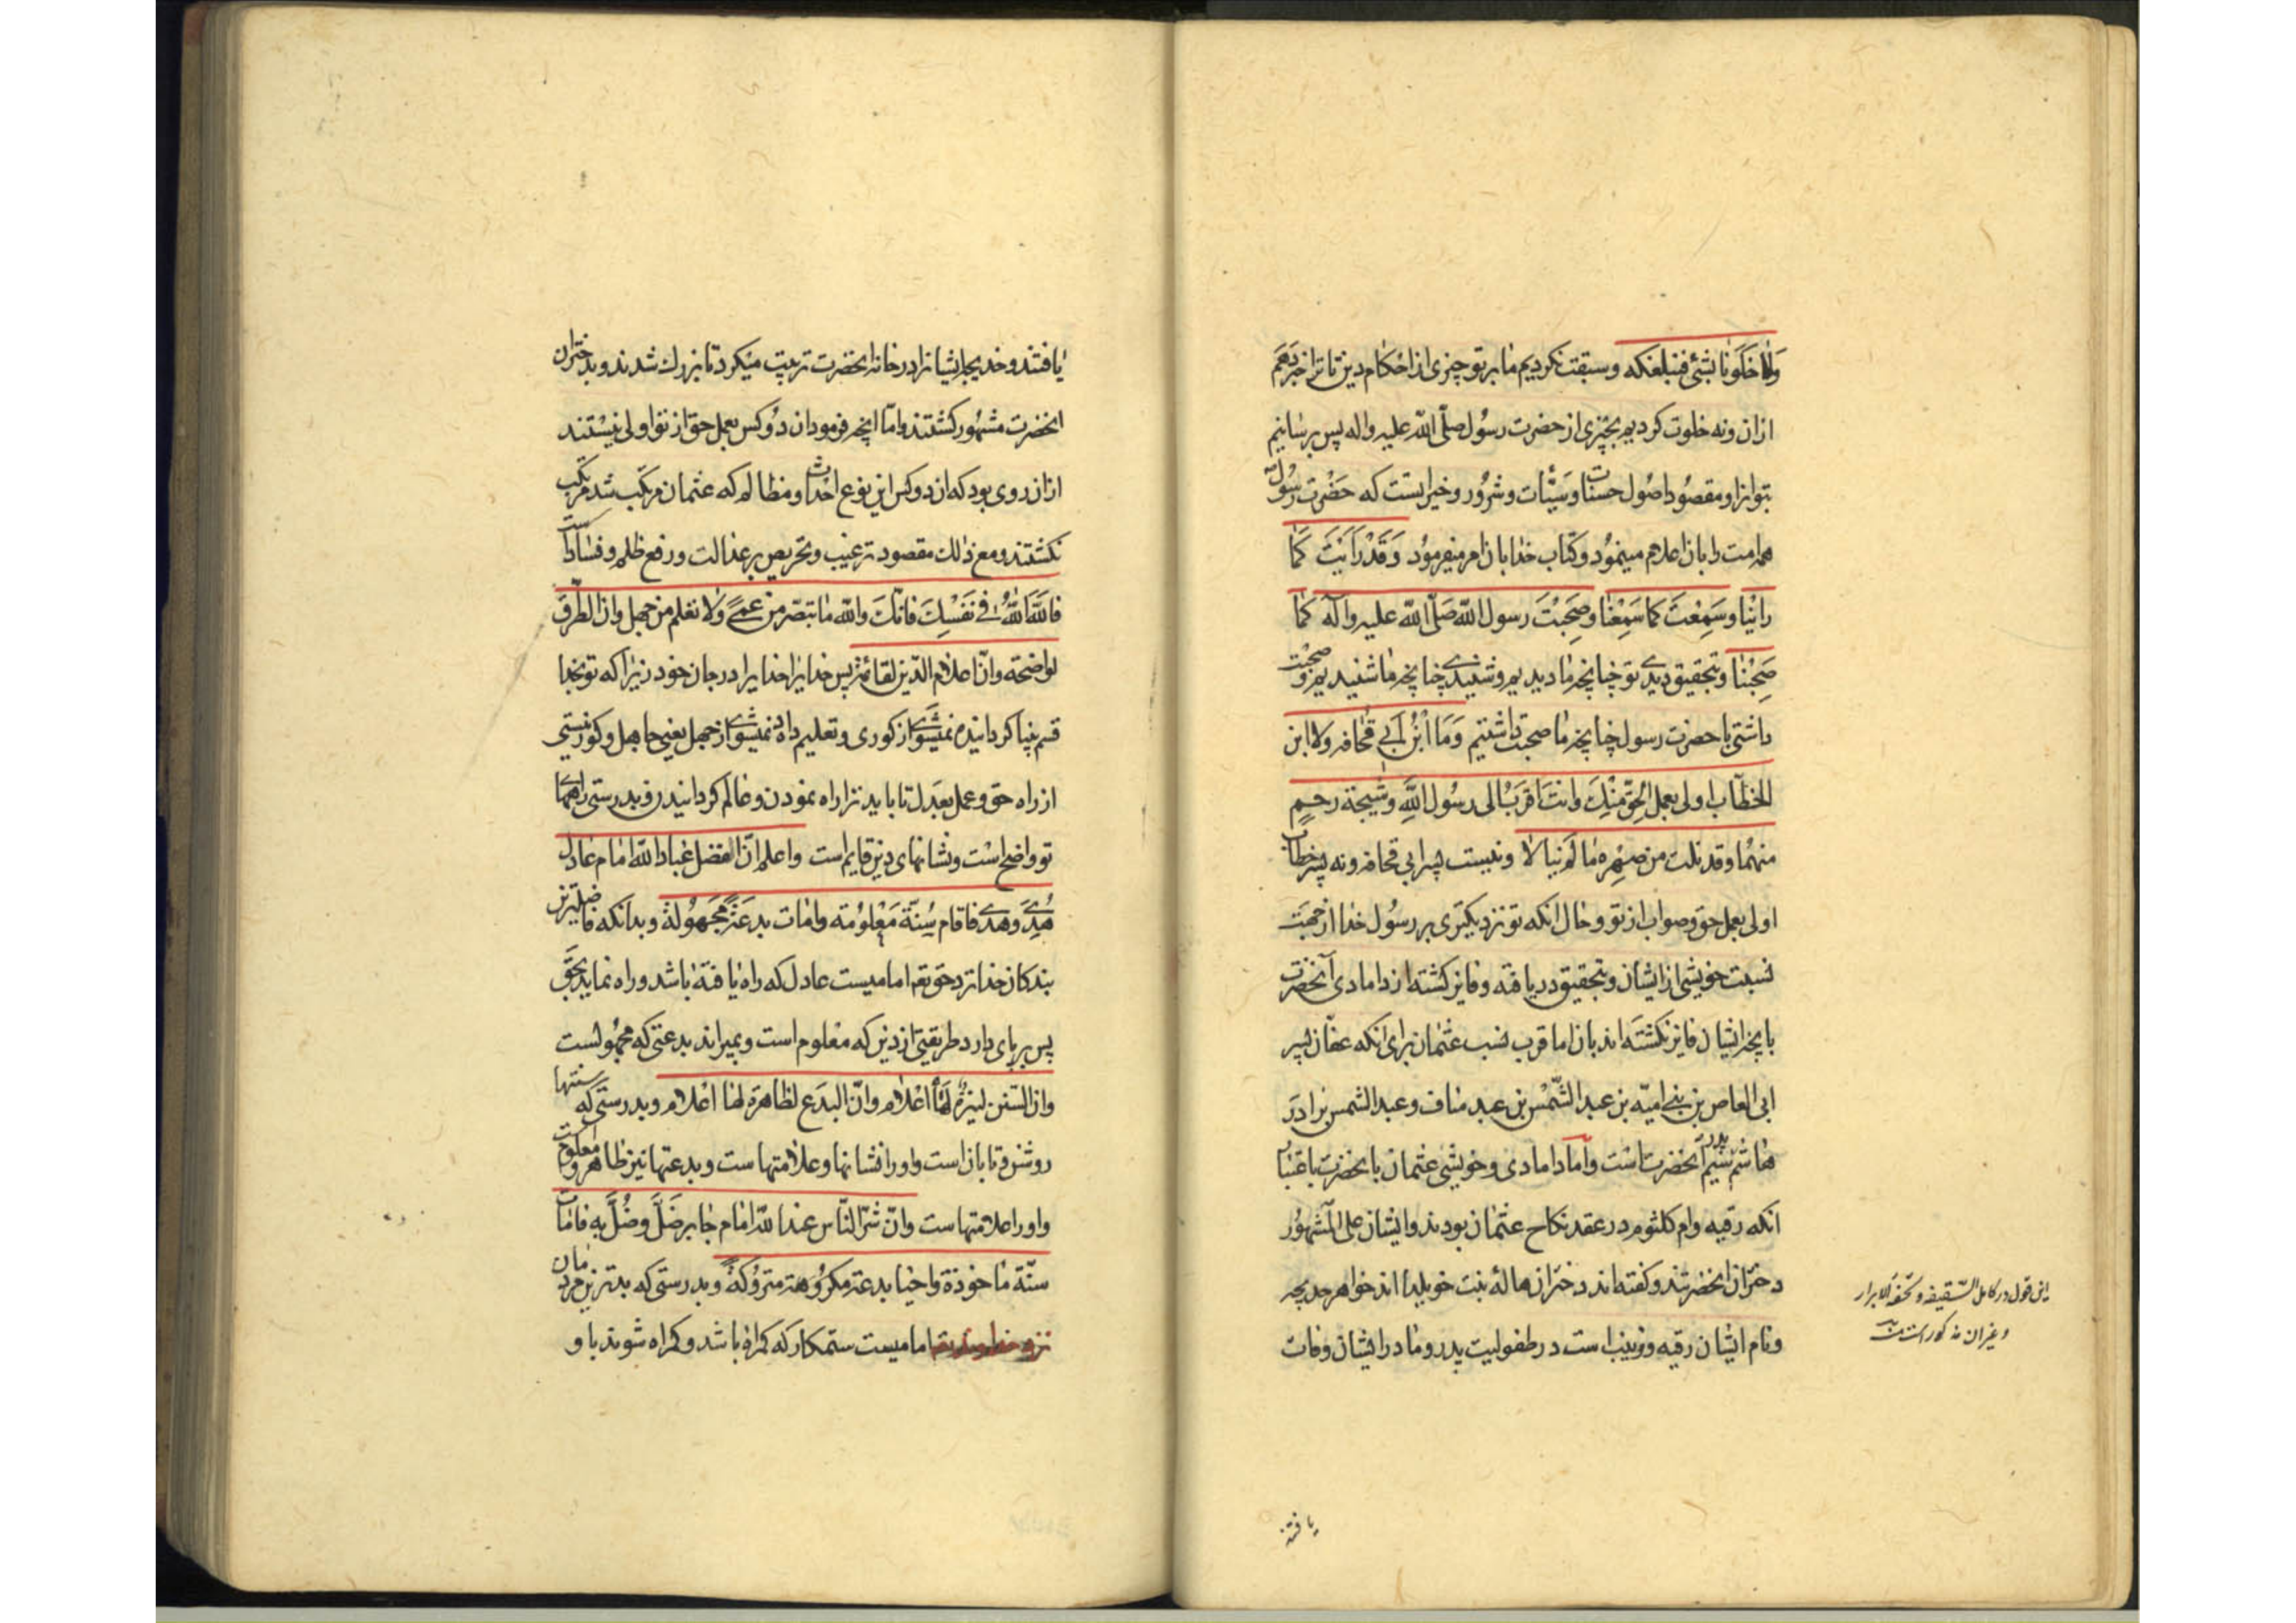 ولا خلونا بشئ فنبلغکه وسبقت نکردیم ما بر تو چیزی از احکام دین تا ترا خبر دهیم
ازان ونه خلوت کردیم بچیزی از حضرت رسول صلی الله علیه واله پس برسانیم
بتو انرا ومقصود اصول حسنات وسیّئات وشرور وخیراتست که حضرت رسول
همه امت را بان اعلام مینمود وکتاب خدا بان امر میفرمود وَقَدْ رَاَیْتَ کَمٰا
راَیْنٰا وسَمِعْتَ کما سَمِعْنٰا وصَحِبْتَ رسول اللّه صَلّی اللّه علیه وآله کَمٰا
صَحِبْنٰا وبتحقیق دیدی تو چنانچه ما دیدیم وشنیدی چنانچه ما شنیدیم وصحبت
داشتی با حضرت رسول چنانچه ما صحبت داشتیم وَمَا اْبْنُ اَبی قُحافه ولا ابن
الخطّاب اولی بعمل الحقّ مِنْکَ وانتَ اَقرَبُ الی رسُول اللّهِ وشیجة رحمٍ
منهُما وقد نلت من صِهْره ما لَم ینالا ونیست پسر ابی قحافه ونه پسر خطاب
اولی بعمل حق وصواب از تو وحال انکه تو نزدیکتری بر رسُول خدا از جهَت
نسبت خویشی از ایشان وبتحقیق دریافته وفایز کشته از دامادی آنحضرت
بانچه ایشان فایز نکشته اند بان اما قرب نسب عثمان برای انکه عفّان پسر
ابی العاص بن بنی امیّه بن عبد الشّمْس بن عبد مناف وعبد الشمس برادر
هٰاشم پدر سیّم آنحضرت است وامّا دامادی وخویشی عثمان با نحضرت باعتبار
انکه رقیه وام کلثوم در عقد نکاح عثمٰان بودند وایشان علی المشهُور
دختران انحضرتند وکفته اند دختران هالهٔ بنت خویلد اند خواهر خدیجه
ونام ایشان رقیه وزینب است در طفولیت پدر ومادر ایشان وفات
این قول در کامل السّقیفه وتحفه الابرار
وغیران مذکور است منه
یافتند
یافتند وخدیجه ایشانرا در خانه انحضرت تربیت میکرد تا بزرک شدند وبدختران
انحضرت مشهُور کشتند وامّا انچه فرمود ان دُو کس بعمل حق از تو اولی نیستند
ازان روی بود که ان دو کس این نوع احداث ومظالم که عثمان مرتکب شد مرتکب
نکشتند ومع ذلک مقصود ترغیب وتحریص بر عدالت ورفع ظلم وفساد است
فاَللّهَ اَللّهَ فی نَفْسِکَ فانّکَ واللّه ما تبصّر من عمیً ولا تعلم من جهل وان الطُرقَ
لواضحة وانّ اعلام الدّین لقائمة پس خدا یرا خدا یرا در جان خود زیرا که تو بخدا
قسم بینا کردانیده نمیشوی از کوری وتعلیم داده نمیشوی از جهل یعنی جاهل وکور نیستی
از راه حق وعمل بعدل تا باید ترا راه نمودن وعالم کردانیدن وبدرستی راههای
تو واضح است ونشانهای دین قایم است واعلم انّ افضل عباد اللّه امام عادل
هُدِیَ وهَدی فاقام سُنّة مَعْلوُمة وامات بدعَةً مَجهُولة وبدانکه فاضلترین
بندکان خدا نزد حق تعـ امامیست عادل که راه یافته باشد وراه نماید بحق
پس بر پای دارد طریقتی از دین که معلوم است وبمیراند بدعتی که مجهُولست
وانّ السّنن لنیّرةٌ لَهٰا اعْلٰام وانّ البدَع لظاهرة لهٰا اعْلام وبدرستی که سنتها
روشن وتابان است واورا نشانها وعلامتها ست وبدعتها نیز ظاهر ومعلومست
واورا علامتهاست وانّ شرّ النّاس عند اللّه امام جابر ضَلَّ وضُلَّ بِه فامات
سنّة ماخوذة واحیا بدعة مکروُهة متروُکةً وبدرستی که بدترین مردمان
نزد خداوند تعـ امامیست ستمکار که کمراه باشد وکمراه شوند باو